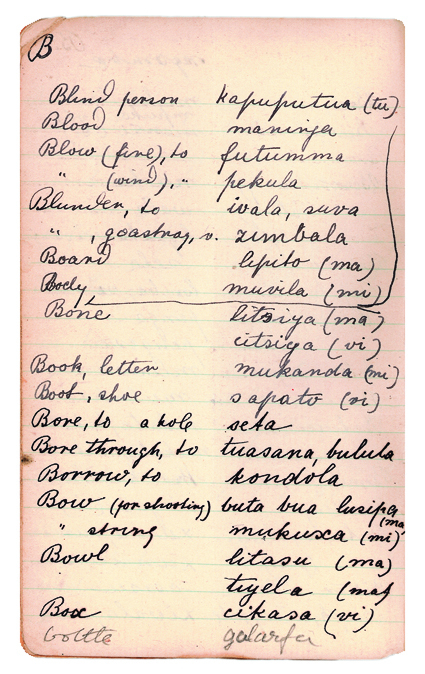 B
Blind person kapuputua (tu)
Blood maninga
Blow (fire), to futumma
" (wind), " pekula
Blunder, to ivala, suva
" , go astray, v. zimbala
Board lipito (ma)
Body muvila (mi)
Bone litsiya (ma)
citsiga (vi)
Book, letter mukanda (mi)
Boot, shoe sapato (vi)
Bore, to a hole seta
Bore through, to tuasana, bulula
Borrow, to kondola
Bow (for shooting) buta bua lusipa (ma)
" string mukuxa (mi)
Bowl litasu (ma)
tiyela (ma)
Box cikasa (vi)
bottle